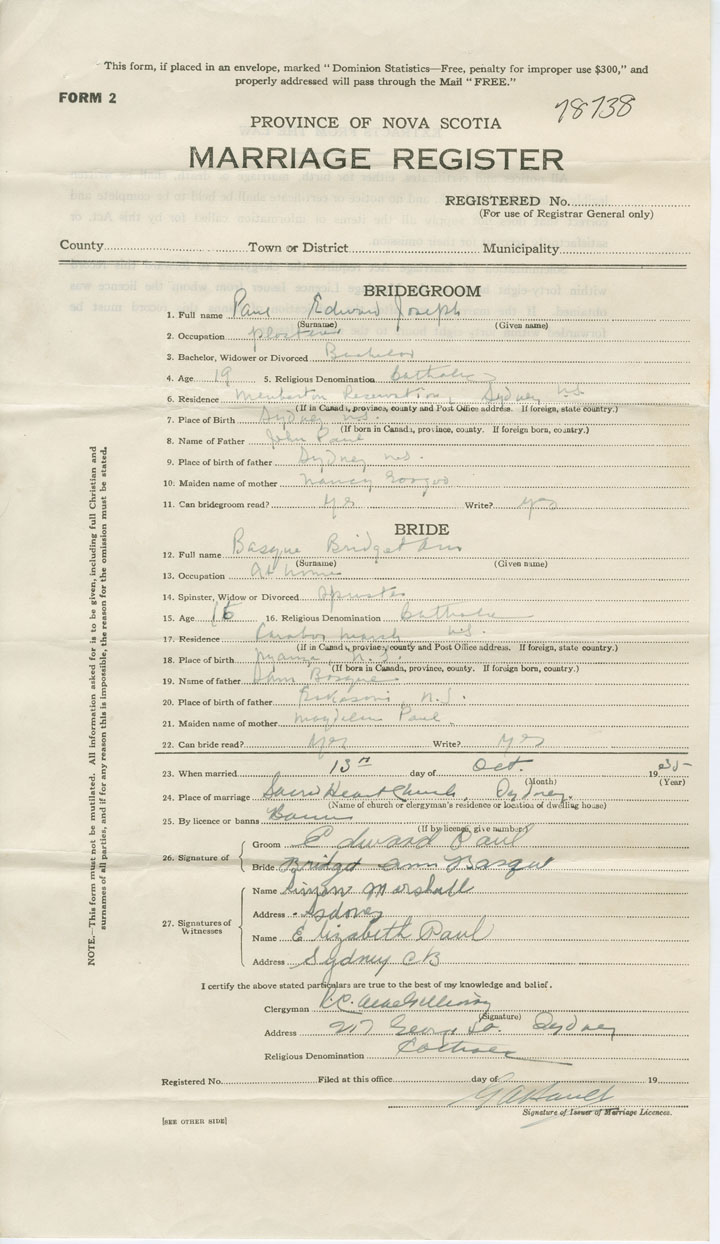 This form, if placed in an envelope, marked "Dominion Statistics—Free, penalty for improper use $300," and
properly addressed will pass through the Mail "FREE."
FORM 2
78738
PROVINCE OF NOVA SCOTIA
MARRIAGE REGISTER
REGISTERED No.
(For use of Registrar General only)
County Town or District Municipality
BRIDEGROOM
1. Full name Paul Edward Joseph
(Surname) (Given name)
2. Occupation
3. Bachelor, Widower or Divorced Bachelor
4. Age 19 5. Religious Denomination Catholic
6. Residence Reservation, Sydney N.S.
(If in Canada, province, county and Post Office address. If foreign, state country.)
7. Place of Birth Sydney N.S.
(If born in Canada, province, county. If foreign born, country.)
8. Name of Father John Paul
9. Place of birth of father Sydney N.S.
10. Maiden name of mother Nancy
11. Can bridegroom read? Yes Write? Yes
BRIDE
12. Full name Basque Bridget Ann
(Surname) (Given name)
13. Occupation At home
14. Spinster, Widow or Divorced Spinster
15. Age 16. Religious Denomination Catholic
17. Residence Marsh N.S.
(If in Canada, province, county and Post Office address. If foreign, state country.)
18. Place of birth Nyanza, N.S.
(If born in Canada, province, county. If foreign born, country.)
19. Name of father John Basque
20. Place of birth of father Eskasoni N.S.
21. Maiden name of mother Paul
22. Can bride read? Yes Write? Yes
23. When married 13th day of Oct. 1935
(Month) (Year)
24. Place of marriage Sacred Heart Church, Sydney.
(Name of church or clergyman's residence or location of dwelling house)
25. By licence or banns Banns
(If by licence, give number)
26. Signature of Groom Edward Paul
Bride Bridget Ann Basque
27. Signatures of Witnesses
Name Simon Marshall
Address Sydney
Name Elizabeth Paul
Address Sydney CB
I certify the above stated particulars are true to the best of my knowledge and belief.
Clergyman
(Signature)
Address George St. Sydney
Religious Denomination Catholic
Registered No. Filed at this office day of 19
Signature of Issuer of Marriage Licences.
[SEE OTHER SIDE]
NOTE.—This form must not be mutilated. All information asked for is to be given, including full Christian and
surnames of all parties, and if for any reason this is impossible, the reason for the omission must be stated.